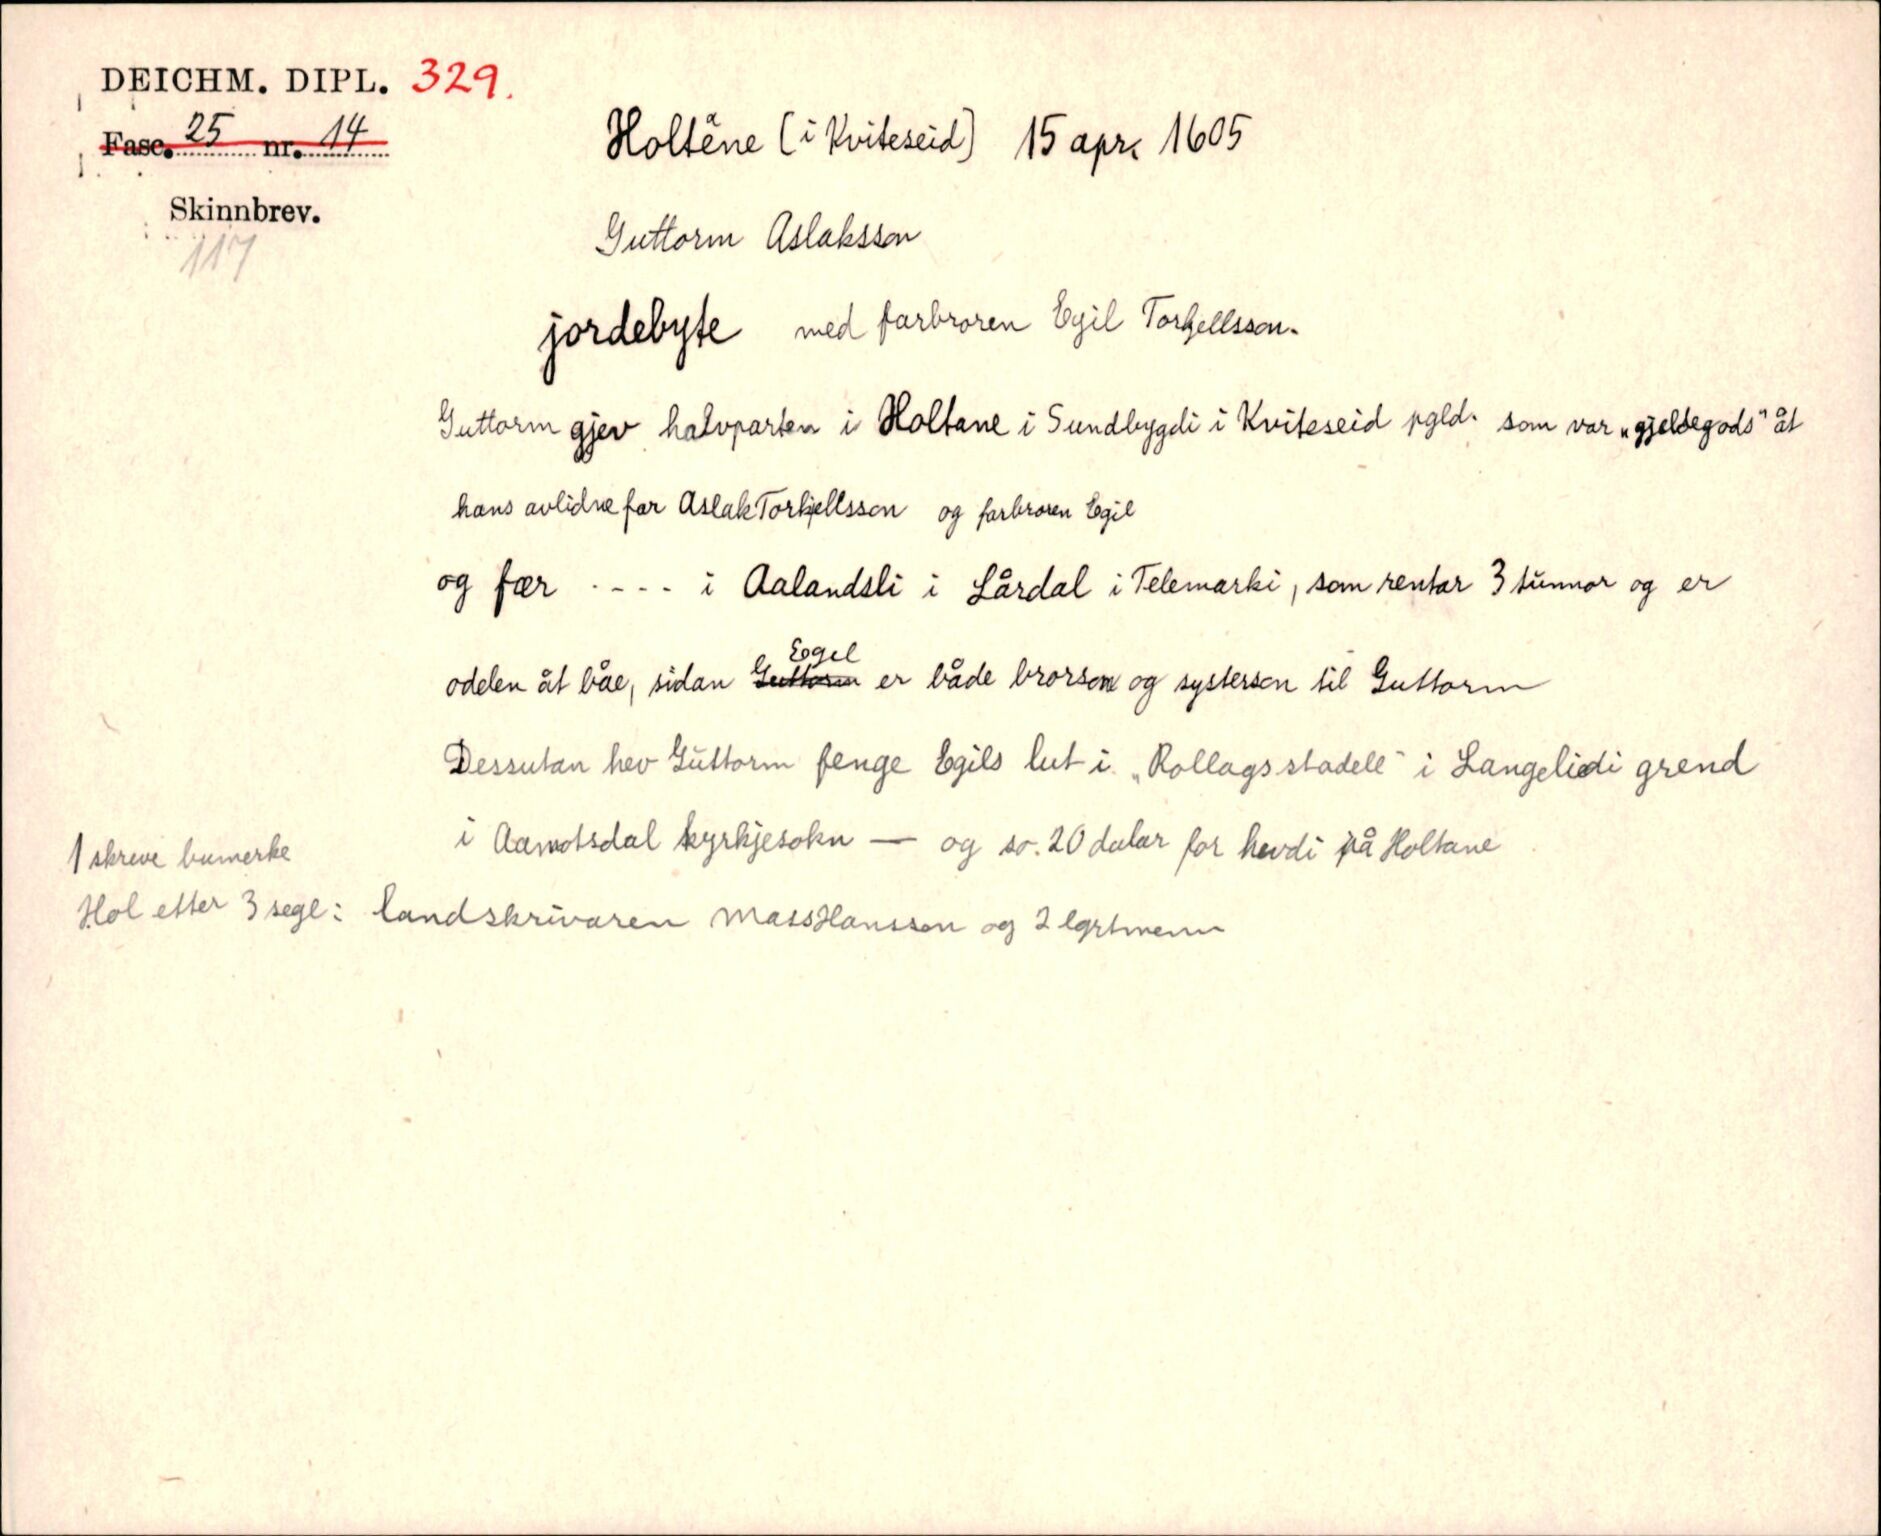 DEICHM. DIPL. 329.
Fasc. 25 nr. 14
Skinnbrev.
117
Holtëne (i Kviteseid) 15 apr. 1605
Guttorm Aslaksson
jordebyte med farbroren Egil Torkjellsson.
Guttorm gjev halvparten i Holtane i Sundbygdi i Kviteseid pgld. som var „gjeldegods" åt
hans avlidne far Aslak Torkjellsson og farbroren Egil
og fær ---- i Aalandsli i Lårdal i Telemarki, som rentar 3 tunnor og er
Egil
odelen åt båe, sidan Guttorm er både brorson og systerson til Guttorm
Dessutan hev Guttorm fenge Egils lut i „Rollagsstadele" i Langelidi grend
i Aamotsdal kyrkjesokn — og so. 20 dalar for hevdi på Holtane
1 skreve bumerke
Hol etter 3 segl: landskrivaren Mass Hansson og 2 lgrtmenn